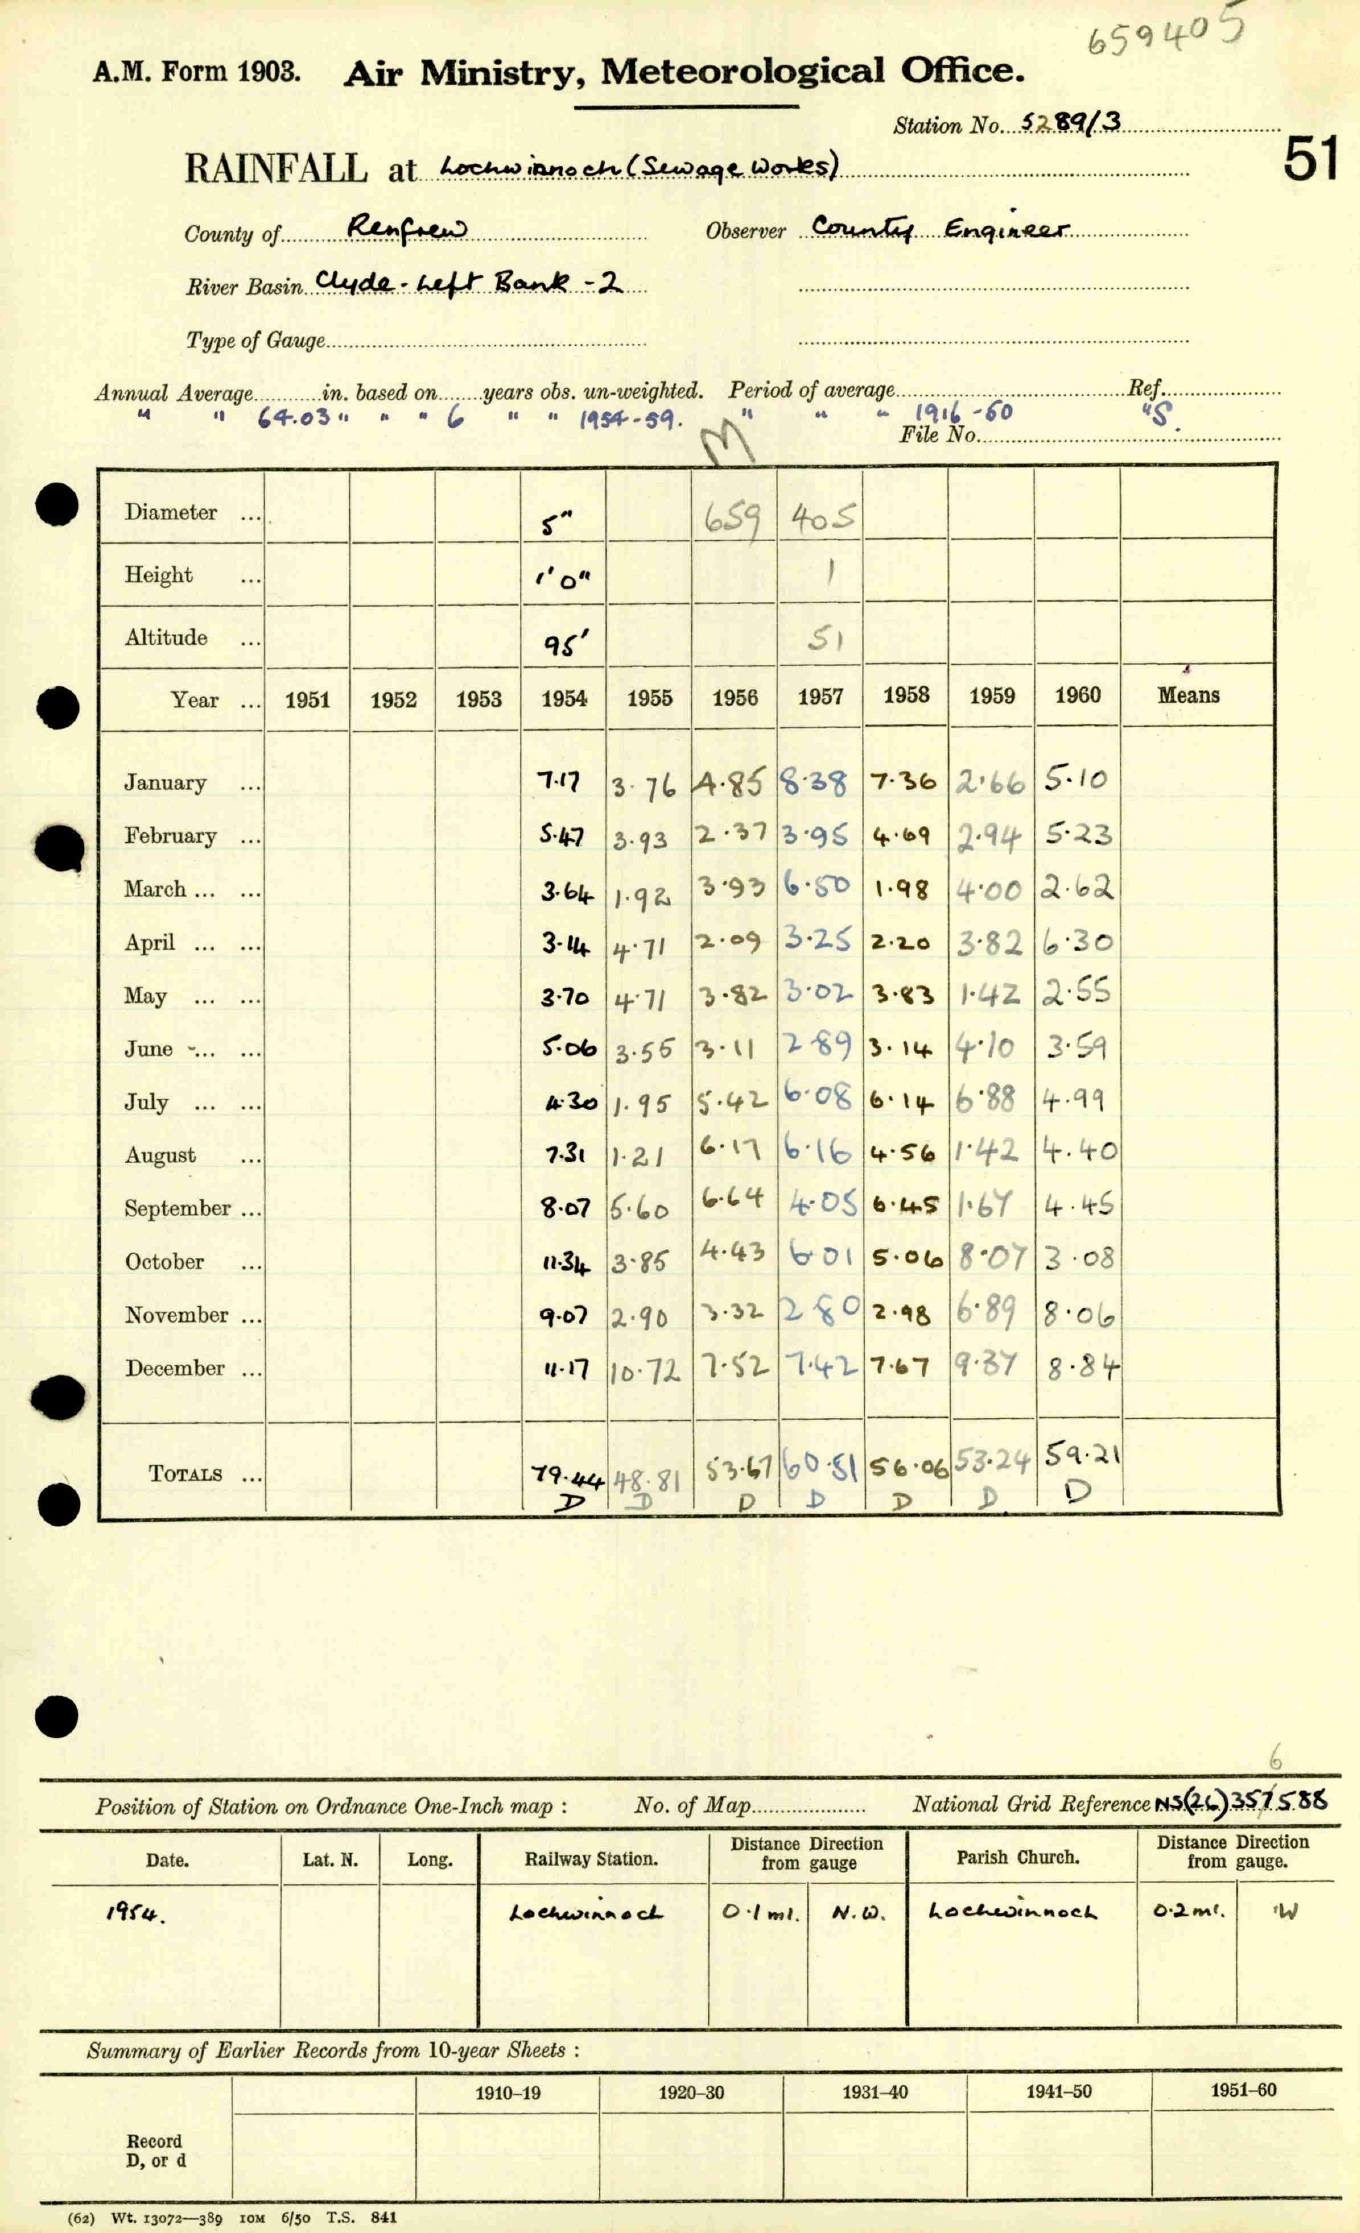 659405
A.M. Form 1903. Air Ministry, Meteorological Office.
Station No. 5289/3
51
RAINFALL at Lochwinnoch (Sewage Works)
County of Renfrew Observer County Engineer
River Basin Clyde - Left Bank - 2
Type of Gauge
Annual Average in. based on years obs. un-weighted. Period of average Ref.
" " 64.03 " " " 6 " " 1954-59. " " " 1916-50 "S.
File No.
M
Diameter ... 5" 659 405
Height ... 1'0" 1
Altitude ... 95' 51
Year ... 1951 1952 1953 1954 1955 1956 1957 1958 1959 1960 Means
January ... 7.17 3.76 4.85 8.38 7.36 2.66 5.10
February ... 5.47 3.93 2.37 3.95 4.69 2.94 5.23
March ... ... 3.64 1.92 3.93 6.50 1.98 4.00 2.62
April ... ... 3.14 4.71 2.09 3.25 2.20 3.82 6.30
May ... ... 3.70 4.71 3.82 3.02 3.83 1.42 2.55
June ... ... 5.06 3.55 3.11 2.89 3.14 4.10 3.59
July ... ... 4.30 1.95 5.42 6.08 6.14 6.88 4.99
August ... 7.31 1.21 6.17 6.16 4.56 1.42 4.40
September ... 8.07 5.60 6.64 4.05 6.45 1.67 4.45
October ... 11.34 3.85 4.43 6.01 5.06 8.07 3.08
November ... 9.07 2.90 3.32 2.80 2.98 6.89 8.06
December ... 11.17 10.72 7.52 7.42 7.67 9.37 8.84
TOTALS ... 79.44 48.81 53.67 60.51 56.06 53.24 59.21
D D D D D D D
6
Position of Station on Ordnance One-Inch map : No. of Map National Grid Reference NS(26)357588
Date. Lat. N. Long. Railway Station. Distance Direction from gauge Parish Church. Distance Direction from gauge.
1954. Lochwinnoch 0.1 ml. N.W. Lochwinnoch 0.2 ml. W
Summary of Earlier Records from 10-year Sheets :
1910–19 1920–30 1931–40 1941–50 1951–60
Record
D, or d
(62) Wt. 13072—389 10M 6/50 T.S. 841